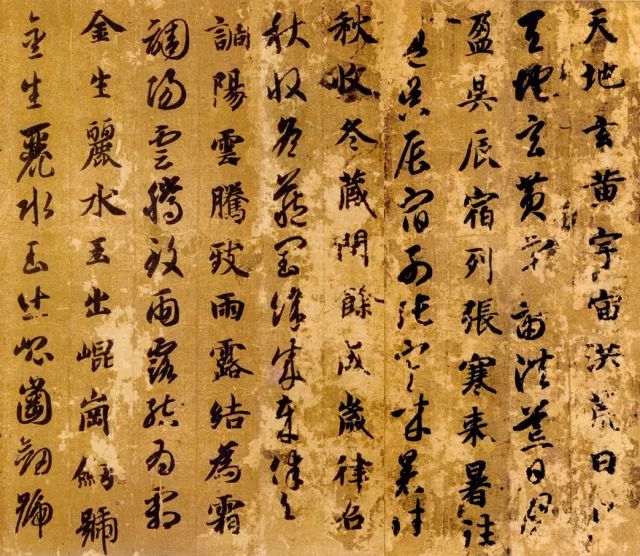 天地玄黄宇宙洪荒日月
天地玄黄宇宙洪荒日月
盈昃辰宿列張寒来暑往
盈昃辰宿列張寒来暑往
秋收冬藏閏餘成歲律召
秋收冬藏閏餘成歲律召
調陽雲騰致雨露結為霜
調陽雲騰致雨露結為霜
金生麗水玉出崐崗劒號
金生麗水玉出崐崗劒號